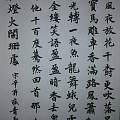 風夜放花千樹更吹落
寶馬雕車香滿路鳳
光轉一夜魚龍舞
金縷笑語盈盈暗香去
他千百度驀然回首那
燈火闌珊處